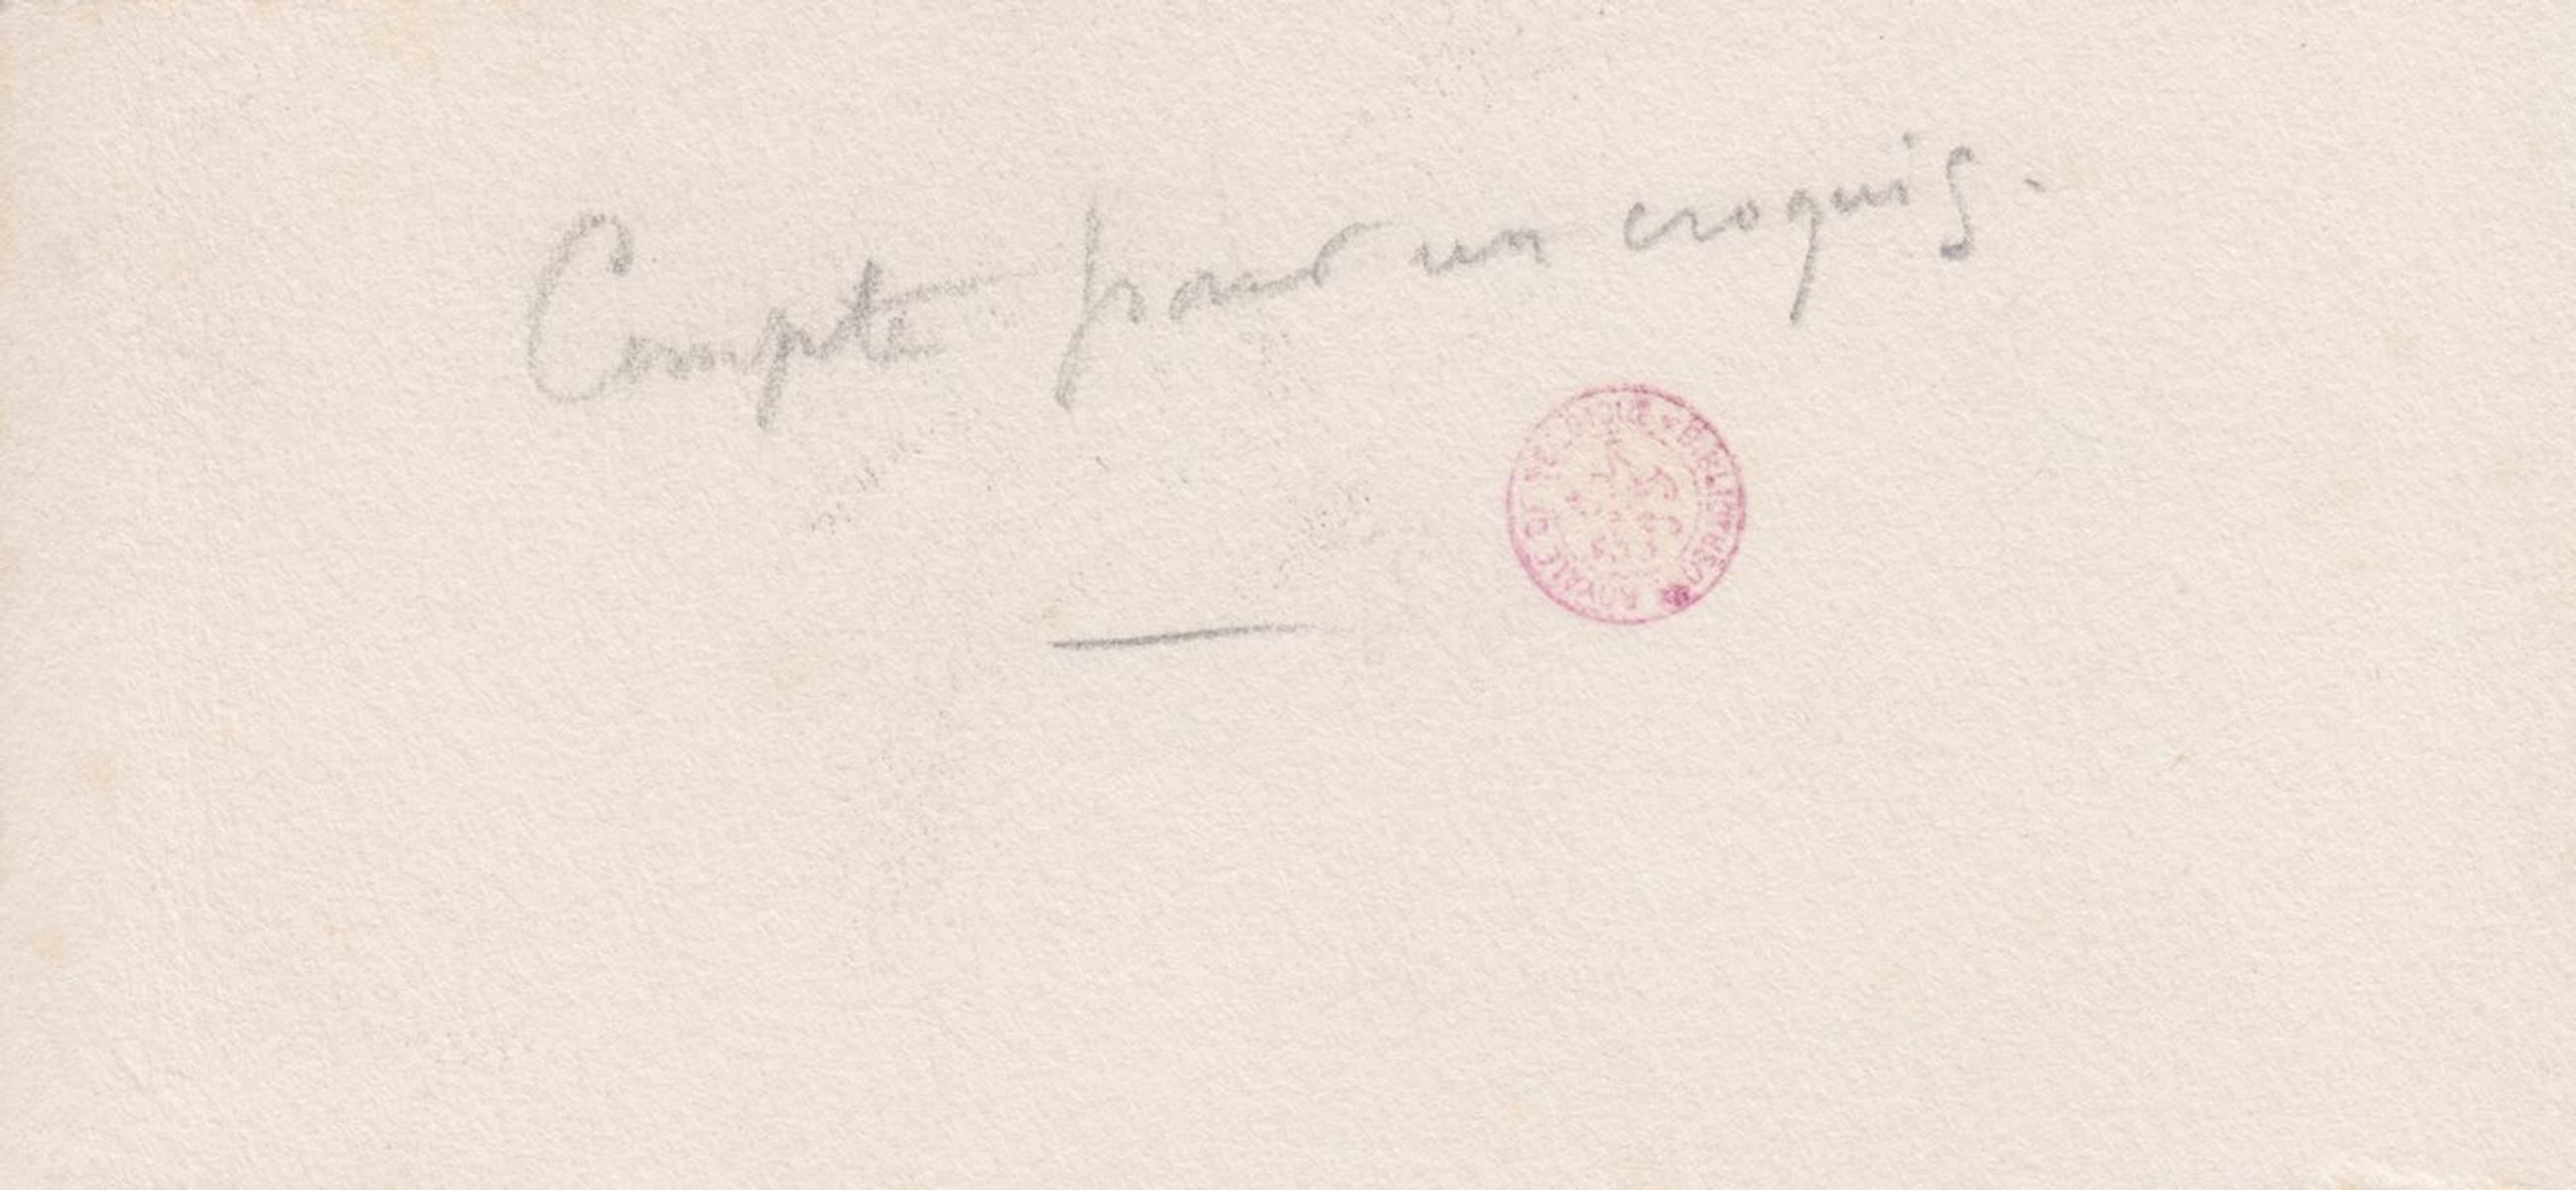 Compte pour un croquis.
BIBLIOTHÈQUE ROYALE DE BELGIQUE